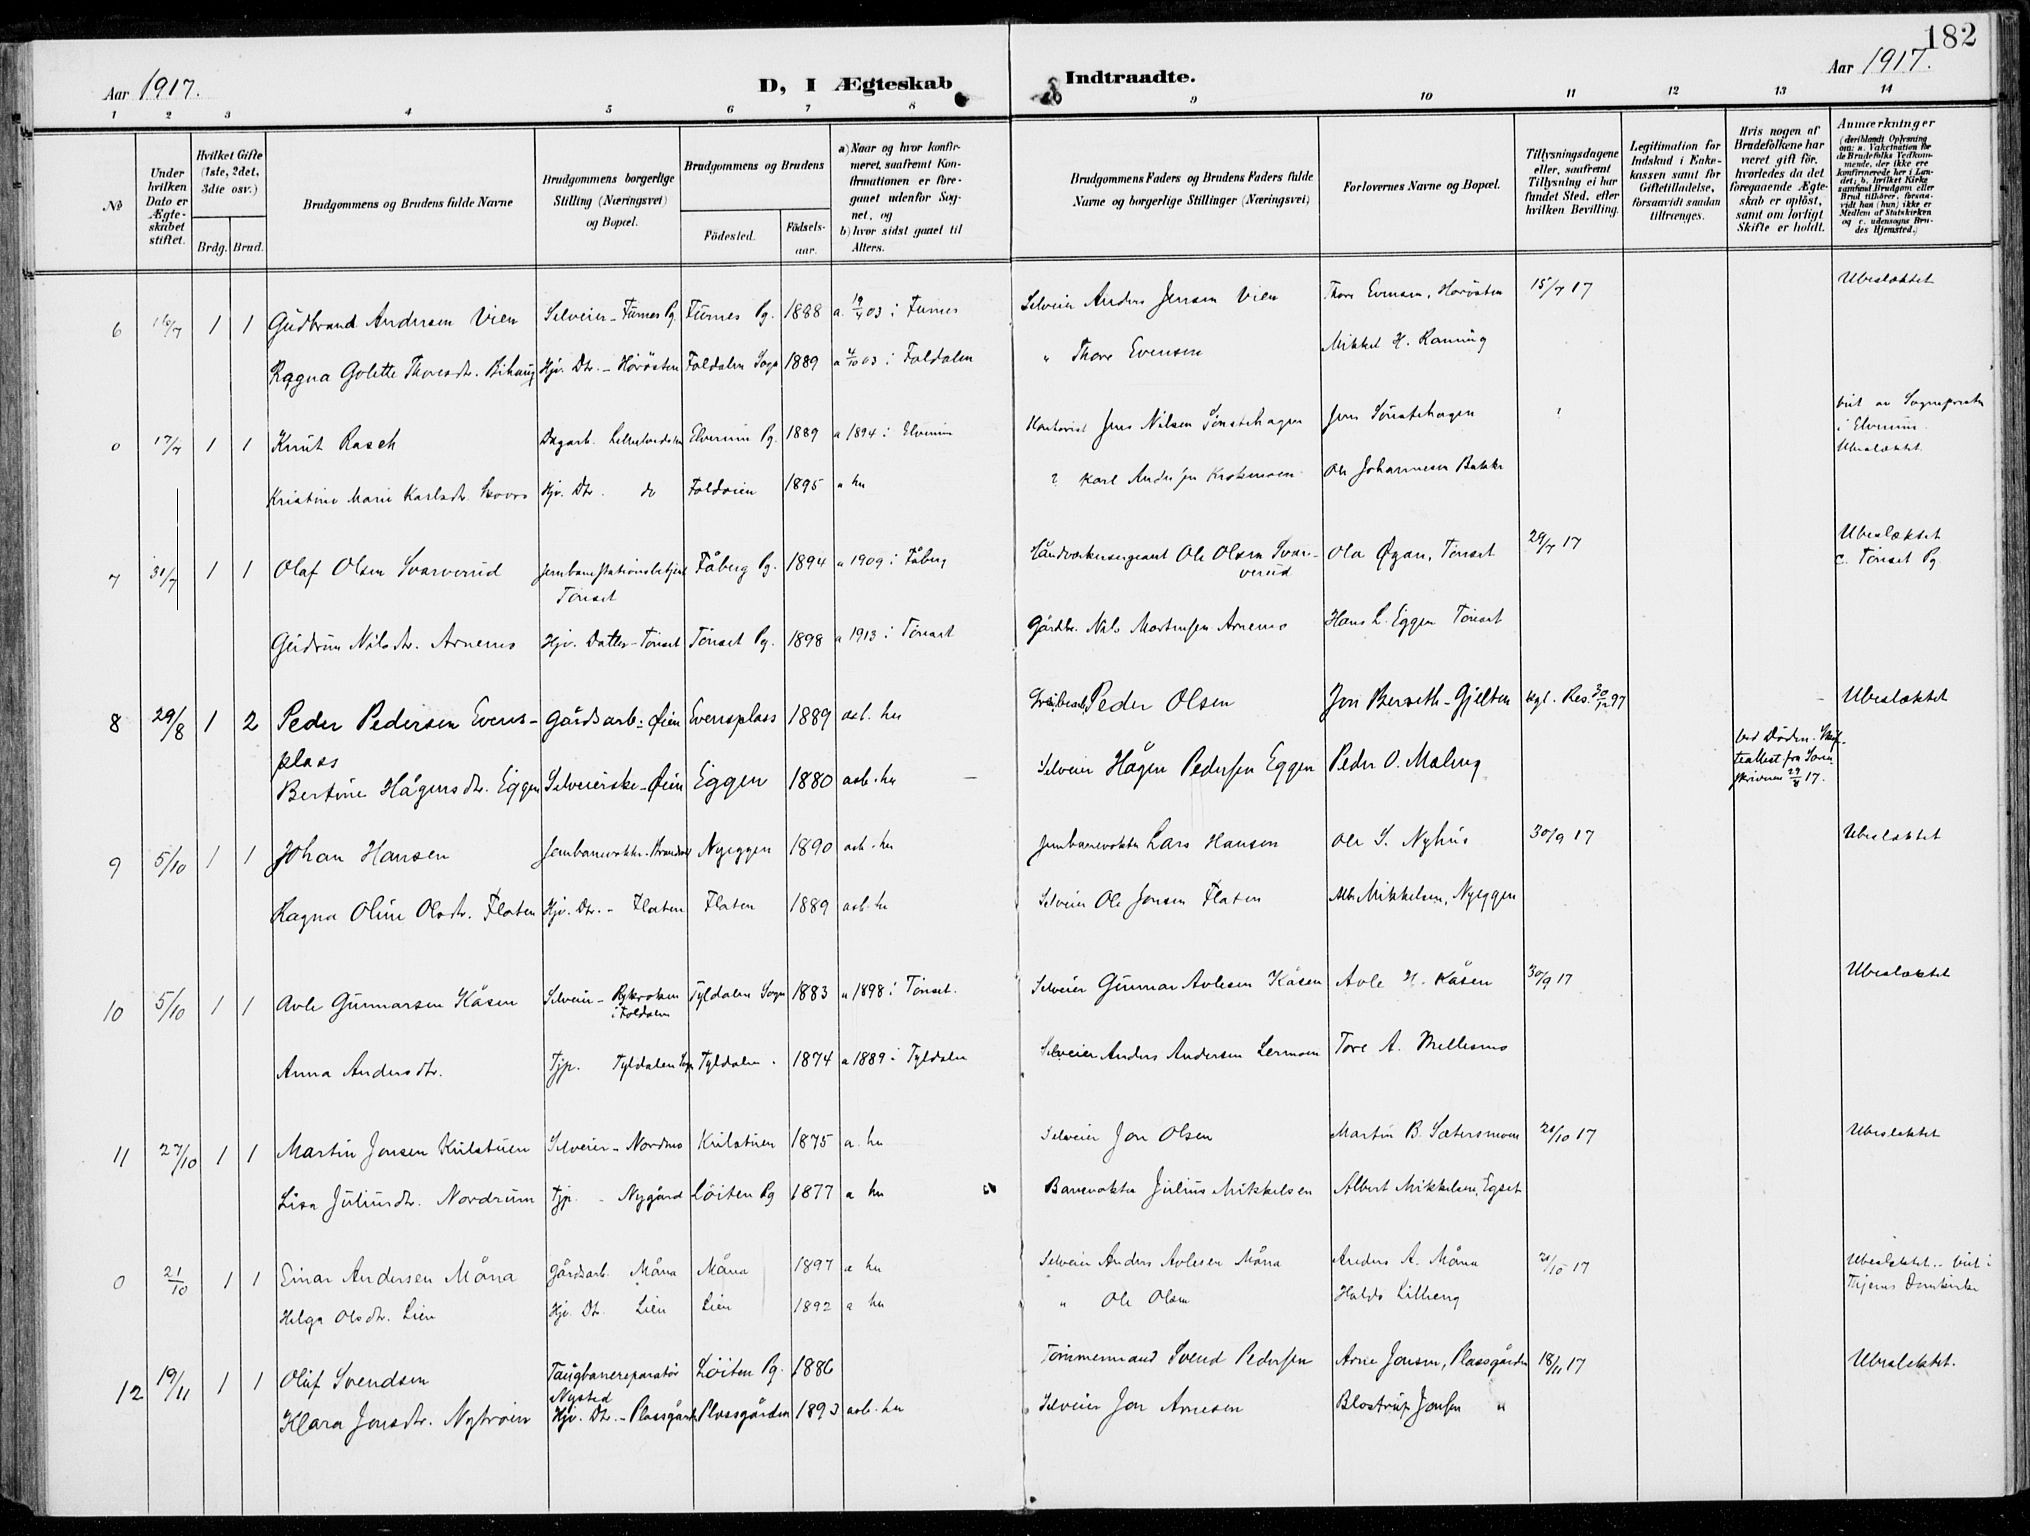 182
Aar 1917.
D, I Ægteskab Indtraadte.
Aar 1917.
1 2 3 4 5 6 7 8 9 10 11 12 13 14
No
Under hvilken Dato er Ægteskabet stiftet.
Hvilket Gifte (1ste, 2det, 3die osv.)
Brdg. Brud.
Brudgommens og Brudens fulde Navne
Brudgommens borgerlige Stilling (Næringsvei) og Bopæl.
Brudgommens og Brudens
Födested. Födselsaar.
a) Naar og hvor konfirmeret, saafremt Konfirmationen er foregaaet udenfor Sognet, og
b) hvor sidst gaaet til Alters.
Brudgommens Faders og Brudens Faders fulde Navne og borgerlige Stillinger (Næringsvei)
Forlovernes Navne og Bopæl.
Tillysningsdagene eller, saafremt Tillysning ei har fundet Sted, efter hvilken Bevilling.
Legitimation for Indskud i Enkekassen samt for Giftetilladelse, forsaavidt saadan tiltrænges.
Hvis nogen af Brudefolkene har været gift för, hvorledes da det foregaaende Ægteskab er oplöst, samt om lovligt Skifte er holdt.
Anmærkninger
(deriblandt Oplysning om: a. Vakcination for de Brudefolks Vedkommende, der ikke ere konfirmerede her i Landet; b. hvilket Kirkesamfund Brudgom eller Brud tilhörer, forsaavidt han (hun) ikke er Medlem af Statskirken og c. udensogns Brudes Hjemsted.)
6 16/7 1 1 Gudbrand Andersen Vien Selveier - Furnes Pg. Furnes Pg. 1888 a. 19/4 03 i Furnes Selveier Anders Jensen Vien Thore Evensen, Horösten 15/7 17 Ubeslæktet
Ragna Golette Thoresdr. Bihaug Hjv. Dtr. - Hörösten Foldalen Sogn 1889 a 4/10 03 i Foldalen " Thore Evensen Mikkel H. Ranning
0 17/7 1 1 Knut Rasch Dagarb. Elverum Pg. 1889 a 1894 i Elverum Kontorist Jens Nilsen Sönstehagen Jens Sönstehagen ? viet av Sogneprest i Elverum. Ubeslæktet
Kristine Marie Karlsdtr. Hjv. Dtr. do Foldvien 1895 a hu ? Karl Anders Krokmoen Ole Johannesen Bakke
7 31/7 1 1 Olaf Olsen Svarverud Jernbanestationsbetjent Tönset Fåberg Pg. 1894 a 1909 i Fåberg Håndverkersergeant Ole Olsen Svarverud Ola Øgan, Tönset 29/7 17 Ubeslæktet
c. Tönset Pg.
Gudrun Nilsdtr. Arnemo Hjv. Datter - Tönset Tönset Pg. 1898 a 1913 i Tönset Gårdbr. Nils Mortensen Arnemo Hans L. Eggen Tönset
8 29/8 1 2 Peder Pedersen Evensplass Gårdsarb. - Øien Evensplass 1889 aeb. hu Peder Olsen Jon Berseth - Gjelten Kgl. Res. 30/12 97 Ubeslæktet
Bertine Hågensdtr. Eggen Selveierske - Øien Eggen 1880 aeb. hu Selveier Hågen Pedersen Eggen Peder O. Malmg Ved Döden. Skifteattest fra Sorenskriveren 29/8 17.
9 5/10 1 1 Johan Hansen Jernbanevokter - Nyeggen 1890 aeb. hu Jernbanevokter Lars Hansen Ole S. Nyhus 30/9 17 Ubeslæktet
Ragna Oline Olsdtr. Flaten Hjv. Dtr. - Flaten Flaten 1889 aeb. hu Selveier Ole Jonsen Flaten Alb. Mikkelsen, Nyeggen
10 5/10 1 1 Avle Gunnarsen Kåsen Selveier - i Foldalen Tyldalen Sogn 1883 a 1898 i Tönset. Selveier Gunnar Avlesen Kåsen Avle H. Kåsen 30/9 17 Ubeslæktet
Anna Andersdtr. Tjp. Tyldalen Sogn Tyldalen 1874 a 1889 i Tyldalen Selveier Anders Andersen Lermoen Tore A. Mellesmo
11 27/10 1 1 Martin Jonsen Kulstuen Selveier - Nordmo Kulstuen 1875 a. hu Selveier Jon Olsen Martin B. Sætersmoen 21/10 17 Ubeslæktet
Lisa Juliusdtr. Nordrum Tjp. - Nygård Löiten Pg 1877 a hu Banevokter Julius Mikkelsen Albert Mikkelsen, Egset
0 21/10 1 1 Einar Andersen Måna Gårdsarb. Måna Måna 1897 a hu Selveier Anders Avlesen Måna Anders A. Måna 21/10 17 Ubeslæktet. Viet i Trjems Domkirke
Helga Olsdtr. Lien Hjv. Dtr. Lien Lien 1892 a hu " Ole Olsen Haldo Lilleng
12 19/11 1 1 Oluf Svendsen Taugbanereparatör Nysted Löiten Pg. 1886 Tömmermand Svend Pedersen Arne Jonsen, Plassgården 18/11 17 Ubeslektet.
Klara Jonsdtr. Nytröien Hjv. Dtr. - Plassgården Plassgården 1893 aeb. hu Selveier Jon Arnesen Blostrup Jonsen "